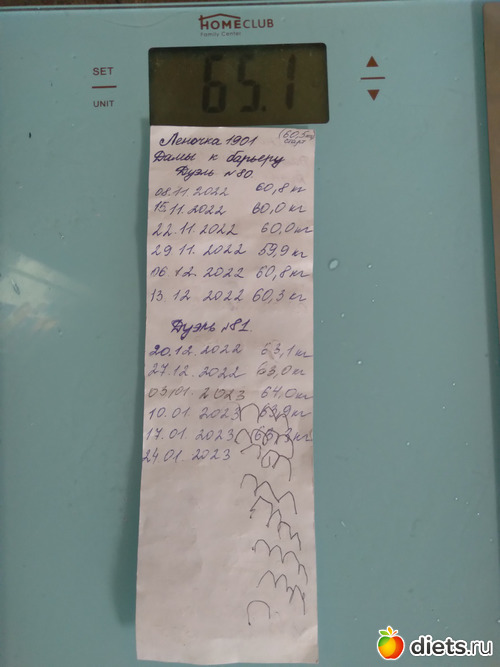 HOMECLUB
Family Center
SET
UNIT
65.1
Леночка 1901 (60,5кг
старт
Дамы к барьеру
Дуэль №80
08.11.2022 60,8кг
15.11.2022 60,0кг
22.11.2022 60,0кг
29.11.2022 59,9кг
06.12.2022 60,8кг
13.12 2022 60,3кг
Дуэль №81.
20.12.2022 63,1кг
27.12.2022 63,0кг
03.01.2023 64.0кг
10.01.2023 63,9кг
17.01.2023 кг
24.01.2023
diets.ru